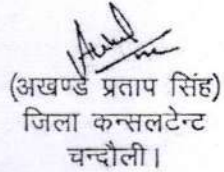 (अखण्ड प्रताप सिंह)
जिला कन्सलटेन्ट
चन्दौली।